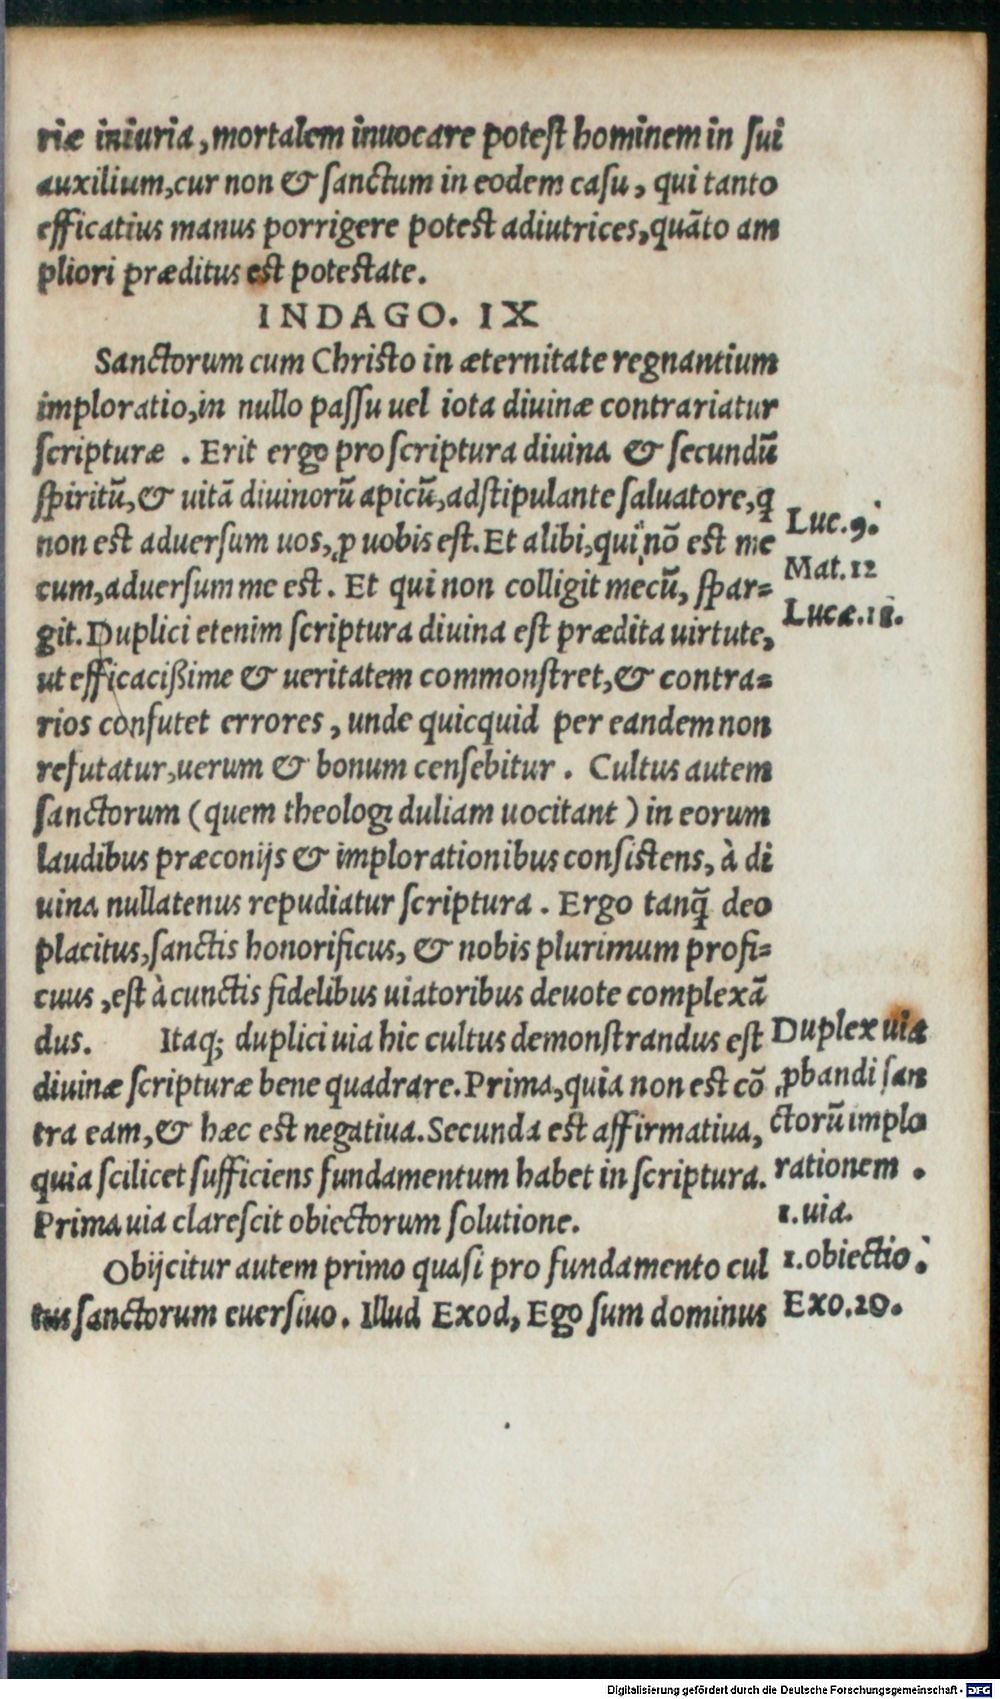 riæ iniuria, mortalem inuocare potest hominem in sui
auxilium, cur non & sanctum in eodem casu, qui tanto
efficatius manus porrigere potest adiutrices, quāto am
pliori præditus est potestate.
INDAGO. IX
Sanctorum cum Christo in æternitate regnantium
imploratio, in nullo passu uel iota diuinæ contrariatur
scripturæ . Erit ergo pro scriptura diuina & secundū
spiritū, & uitā diuinorū apicū, adstipulante saluatore, q̄
non est aduersum uos, ꝓ uobis est. Et alibi, qui nō est me
cum, aduersum me est. Et qui non colligit mecū, spar=
git. Duplici etenim scriptura diuina est prædita uirtute,
ut efficacißime & ueritatem commonstret, & contra=
rios confutet errores, unde quicquid per eandem non
refutatur, uerum & bonum censebitur. Cultus autem
sanctorum (quem theologi duliam uocitant) in eorum
laudibus præconijs & implorationibus consistens, à di
uina nullatenus repudiatur scriptura. Ergo tanq̄ deo
placitus, sanctis honorificus, & nobis plurimum profi=
cuus, est à cunctis fidelibus uiatoribus deuote complexā
dus. Itaq; duplici uia hic cultus demonstrandus est
diuinæ scripturæ bene quadrare. Prima, quia non est cō
tra eam, & hæc est negatiua. Secunda est affirmatiua,
quia scilicet sufficiens fundamentum habet in scriptura.
Prima uia clarescit obiectorum solutione.
Obijcitur autem primo quasi pro fundamento cul
tus sanctorum euersiuo. Illud Exod, Ego sum dominus
Luc.9.
Mat.12
Lucæ.11.
Duplex uia
ꝓbandi san
ctorū implo
rationem .
1.uia.
1.obiectio.
Exo.20.
Digitalisierung gefördert durch die Deutsche Forschungsgemeinschaft - DFG